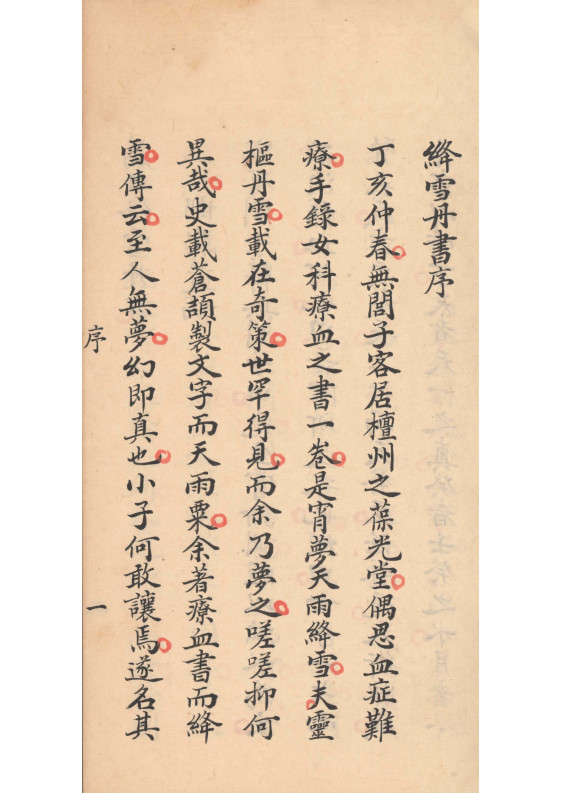 絳雪丹書序
丁亥仲春無閭子客居檀州之葆光堂偶思血症難
療手錄女科療血之書一卷是宵夢天雨絳雪夫靈
樞丹雪載在奇策世罕得見而余乃夢之嗟嗟抑何
異哉史載蒼頡製文字而天雨粟余著療血書而絳
雪傳云至人無夢幻即真也小子何敢讓焉遂名其
序
一